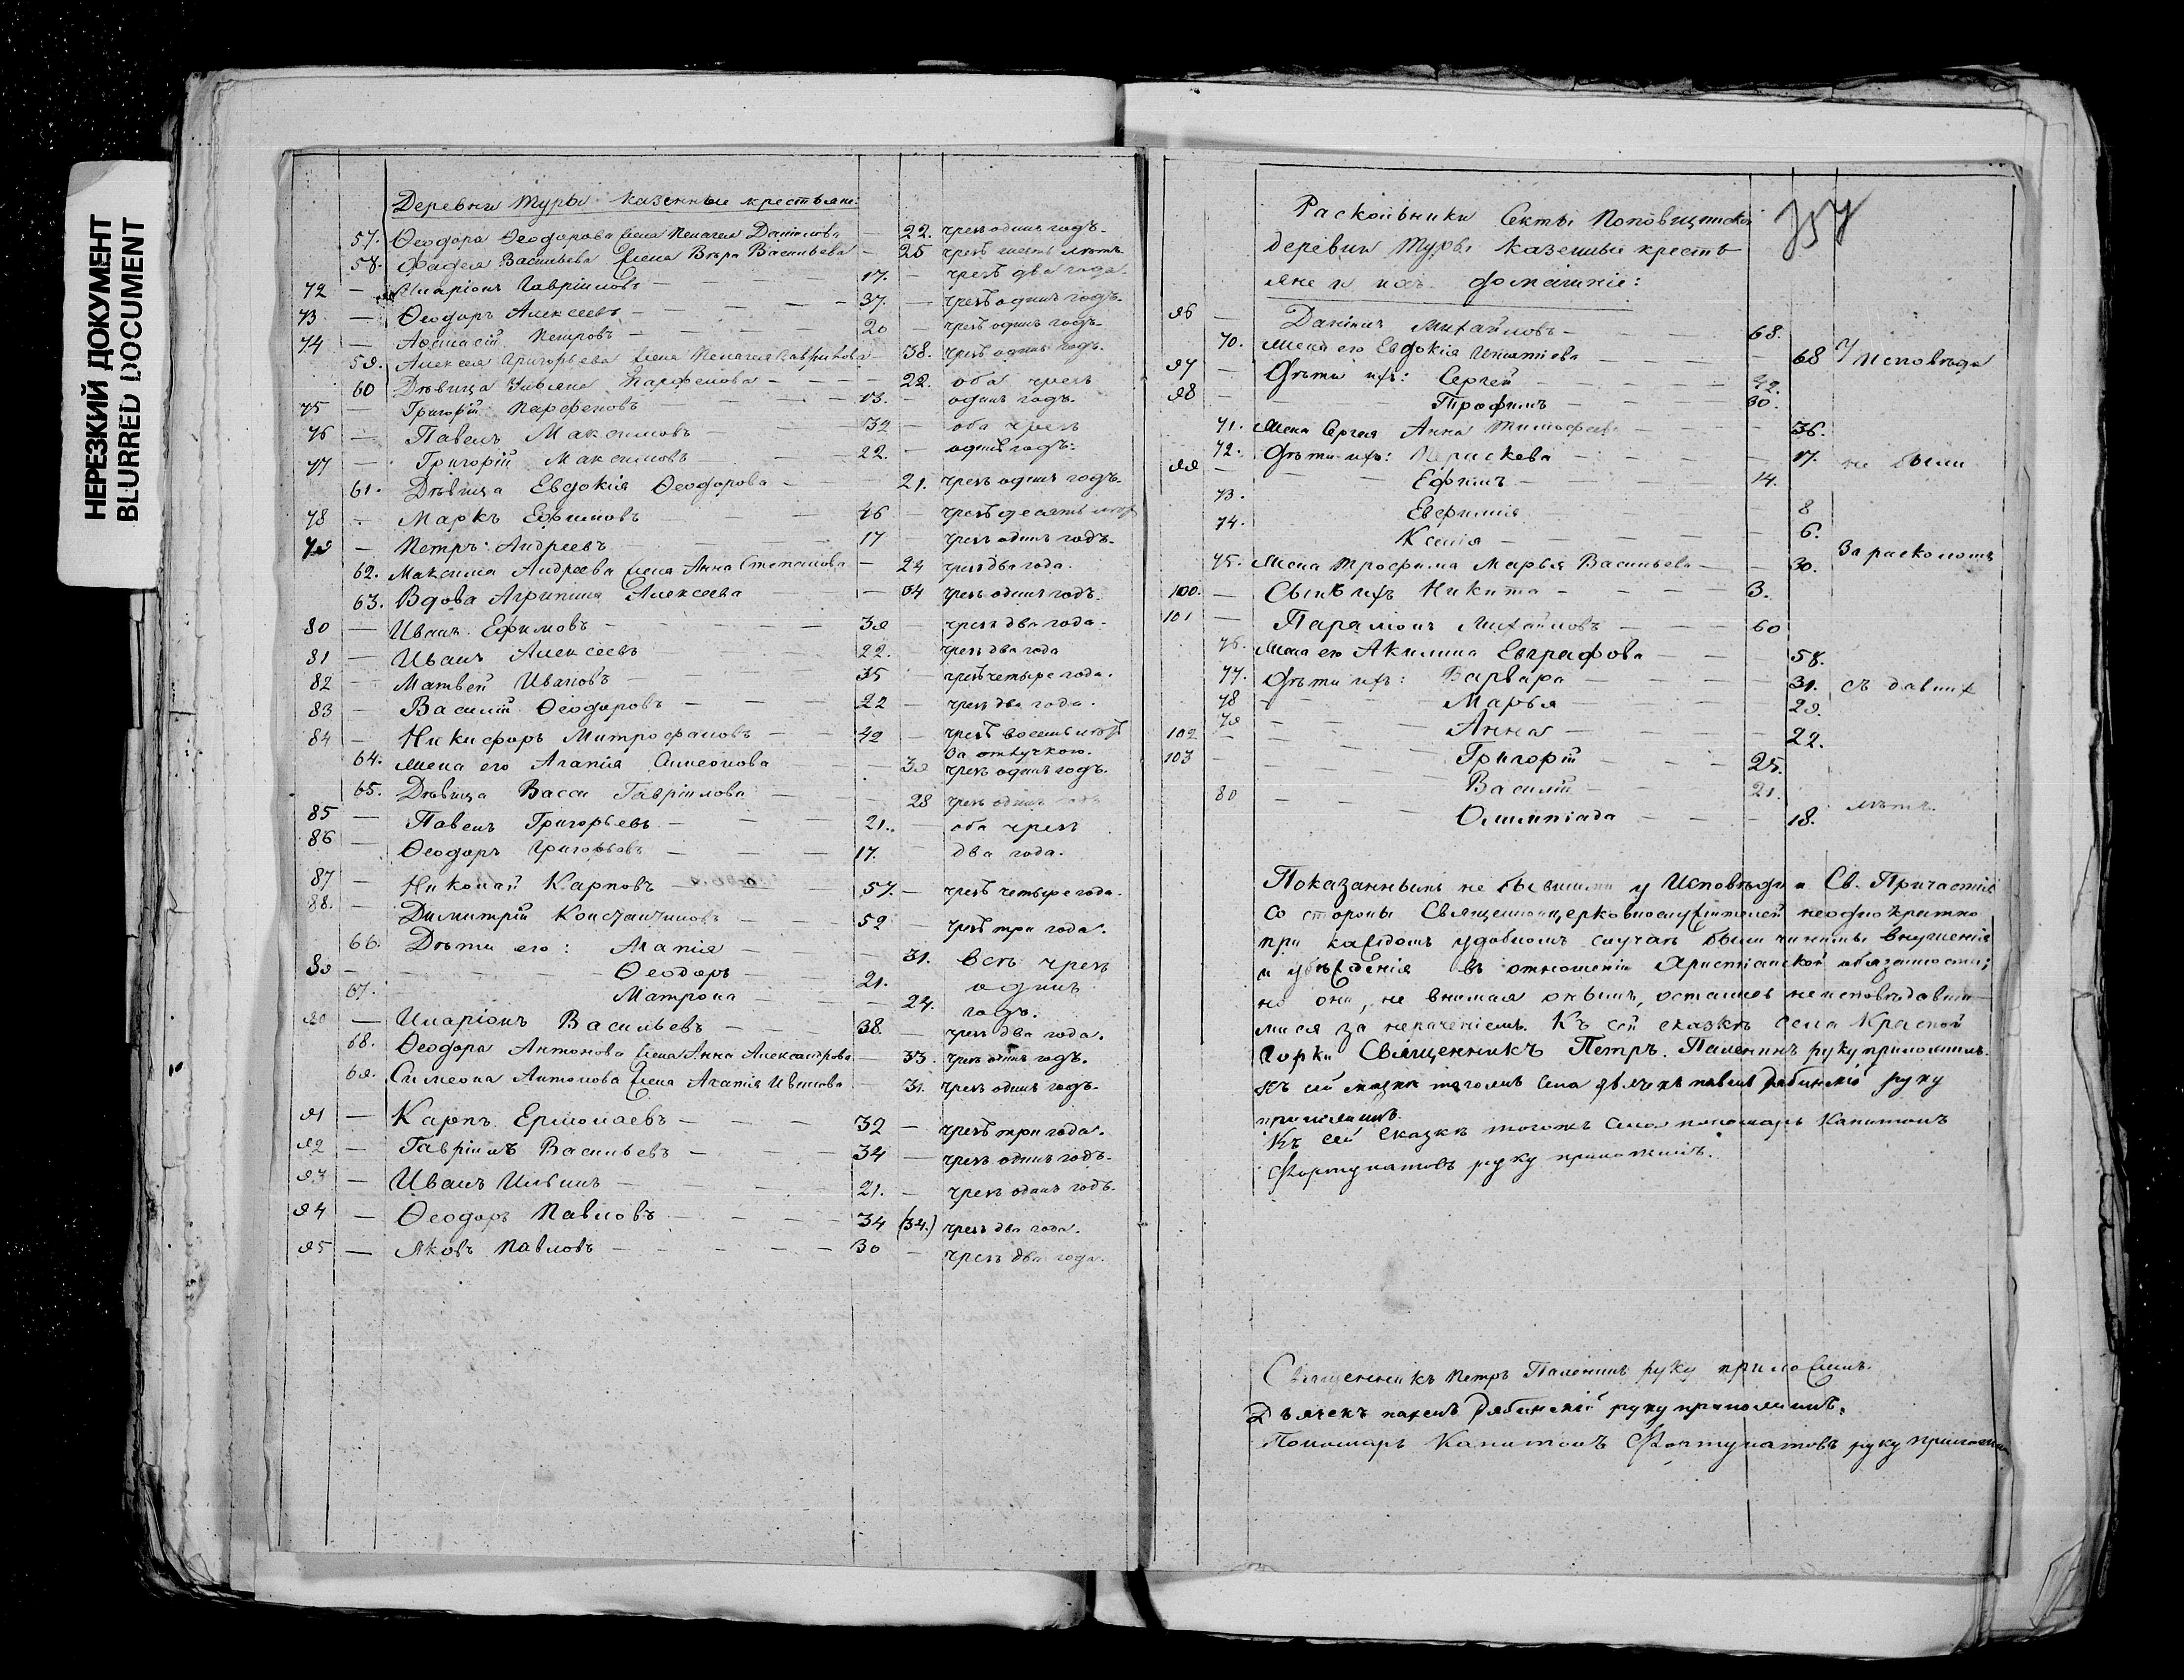 НЕРЕЗКИЙ ДОКУМЕНТ
BLURRED DOCUMENT
Деревни Туры казенные крестьяне:
57. Ѳеодора Ѳеодорова жена Пелагея Данілова — 22. чрезъ одинъ годъ.
58. Фадея Васильева жена Вѣра Васильева — 25 чрезъ шесть лѣтъ
72 — Иларіонъ Гавріиловъ — 17. — чрезъ два года.
73 — Ѳеодоръ Алексеевъ — 37. — чрезъ одинъ годъ.
74 — Аѳанасій Петровъ — 20 — чрезъ одинъ годъ.
59. Алексея Григорьева жена Пелагея Гавріилова — 38. чрезъ одинъ годъ.
60 Дѣвица Парфенова — 22. оба чрезъ
75 — Григорій Парфеновъ — 13. — одинъ годъ.
76 — Павелъ Максимовъ — 32 — оба чрезъ
77 — Григорій Максимовъ — 22. — одинъ годъ.
61. Дѣвица Евдокія Ѳеодорова — 21. чрезъ одинъ годъ.
78 — Маркъ Ефимовъ — 46 — чрезъ десять лѣтъ
79 — Петръ Андреевъ — 17 — чрезъ одинъ годъ.
62. Максима Андреева жена Анна Степанова — 24 чрезъ два года.
63. Вдова Агрипина Алексеева — 54 чрезъ одинъ годъ.
80 — Иванъ Ефимовъ — 39 — чрезъ два года.
81 — Иванъ Алексеевъ — 22. — чрезъ два года
82 — Матвей Ивановъ — 35 — чрезъ четыре года.
83 — Василій Ѳеодоровъ — 22 — чрезъ два года.
84 — Никифоръ Митрофановъ — 42 — чрезъ восемь лѣтъ
за отлучкою.
64. Жена его Агапія Симеонова — 39 чрезъ одинъ годъ.
65. Дѣвица Васса Гавріилова — 28 чрезъ одинъ годъ
85 — Павелъ Григорьевъ — 21. — оба чрезъ
86 — Ѳеодоръ Григорьевъ — 17. — два года.
87 — Николай Карповъ — 57. — чрезъ четыре года.
88. — Димитрій Константиновъ — 52 — чрезъ три года.
66. Дѣти его: Агапія — 31. всѣ чрезъ
89 — Ѳеодоръ — 21. одинъ
67. Матрона — 24. годъ.
90 — Иларіонъ Васильевъ — 38 — чрезъ два года.
68. Ѳеодора Антонова жена Анна Александрова — 33. чрезъ одинъ годъ.
69. Симеона Антонова жена Агапія Иванова — 31. чрезъ одинъ годъ.
91 — Карпъ Ермолаевъ — 32 — чрезъ три года.
92 — Гавріилъ Васильевъ — 34 — чрезъ одинъ годъ.
93 — Иванъ Ильинъ — 21. — чрезъ одинъ годъ.
94 — Ѳеодоръ Павловъ — 34 (34.) чрезъ два года.
95 — Яковъ Павловъ — 30 — чрезъ два года.
Раскольники Секты Поповщинской
деревни Туры казенные кресть
яне и ихъ домашніе:
96 — Даніилъ Михайловъ — 68.
70. Жена его Евдокія Игнатіева — 68 у исповѣди
97 — Дѣти ихъ: Сергей — 42.
98 — Трофимъ — 30.
71. Жена Сергея Анна Тимофеева — 36.
72. Дѣти ихъ: Параскева — 17. не были
99 — Ефимъ — 14.
73. Евфимія — 8
74. Ксенія — 6.
За расколомъ
75. Жена Трофима Марья Васильева — 30.
100. — Сынъ ихъ Никита — 3.
101 — Парамонъ Михайловъ — 60
76. Жена его Акилина Евграфова — 58.
77. Дѣти ихъ: Варвара — 31. съ давнихъ
78 Марья — 29.
79 Анна — 22.
102 — Григорій — 25.
103 — Василій — 21.
80 Олимпіада — 18. лѣтъ.
Показаннымъ не бывшими у Исповѣди и Св. Причастія
со стороны Священноцерковнослужителей неоднократно
при каждомъ удобномъ случаѣ были чинимы внушенія
и убѣжденія въ отношеніи Христіанской обязанности;
но они, не внимая онымъ, остались неисповѣдавши
мися за нераченіемъ. Къ сей сказкѣ села Красной
Горки Священникъ Петръ Паленинъ руку приложилъ.
Къ сей сказкѣ тогожъ села дьячекъ Павелъ Рябинскій руку
приложилъ.
Къ сей сказкѣ тогожъ села пономарь Капитонъ
Фортунатовъ руку приложилъ.
Священникъ Петръ Паленинъ руку приложилъ.
Дьячекъ Павелъ Рябинскій руку приложилъ.
Пономарь Капитонъ Фортунатовъ руку приложилъ